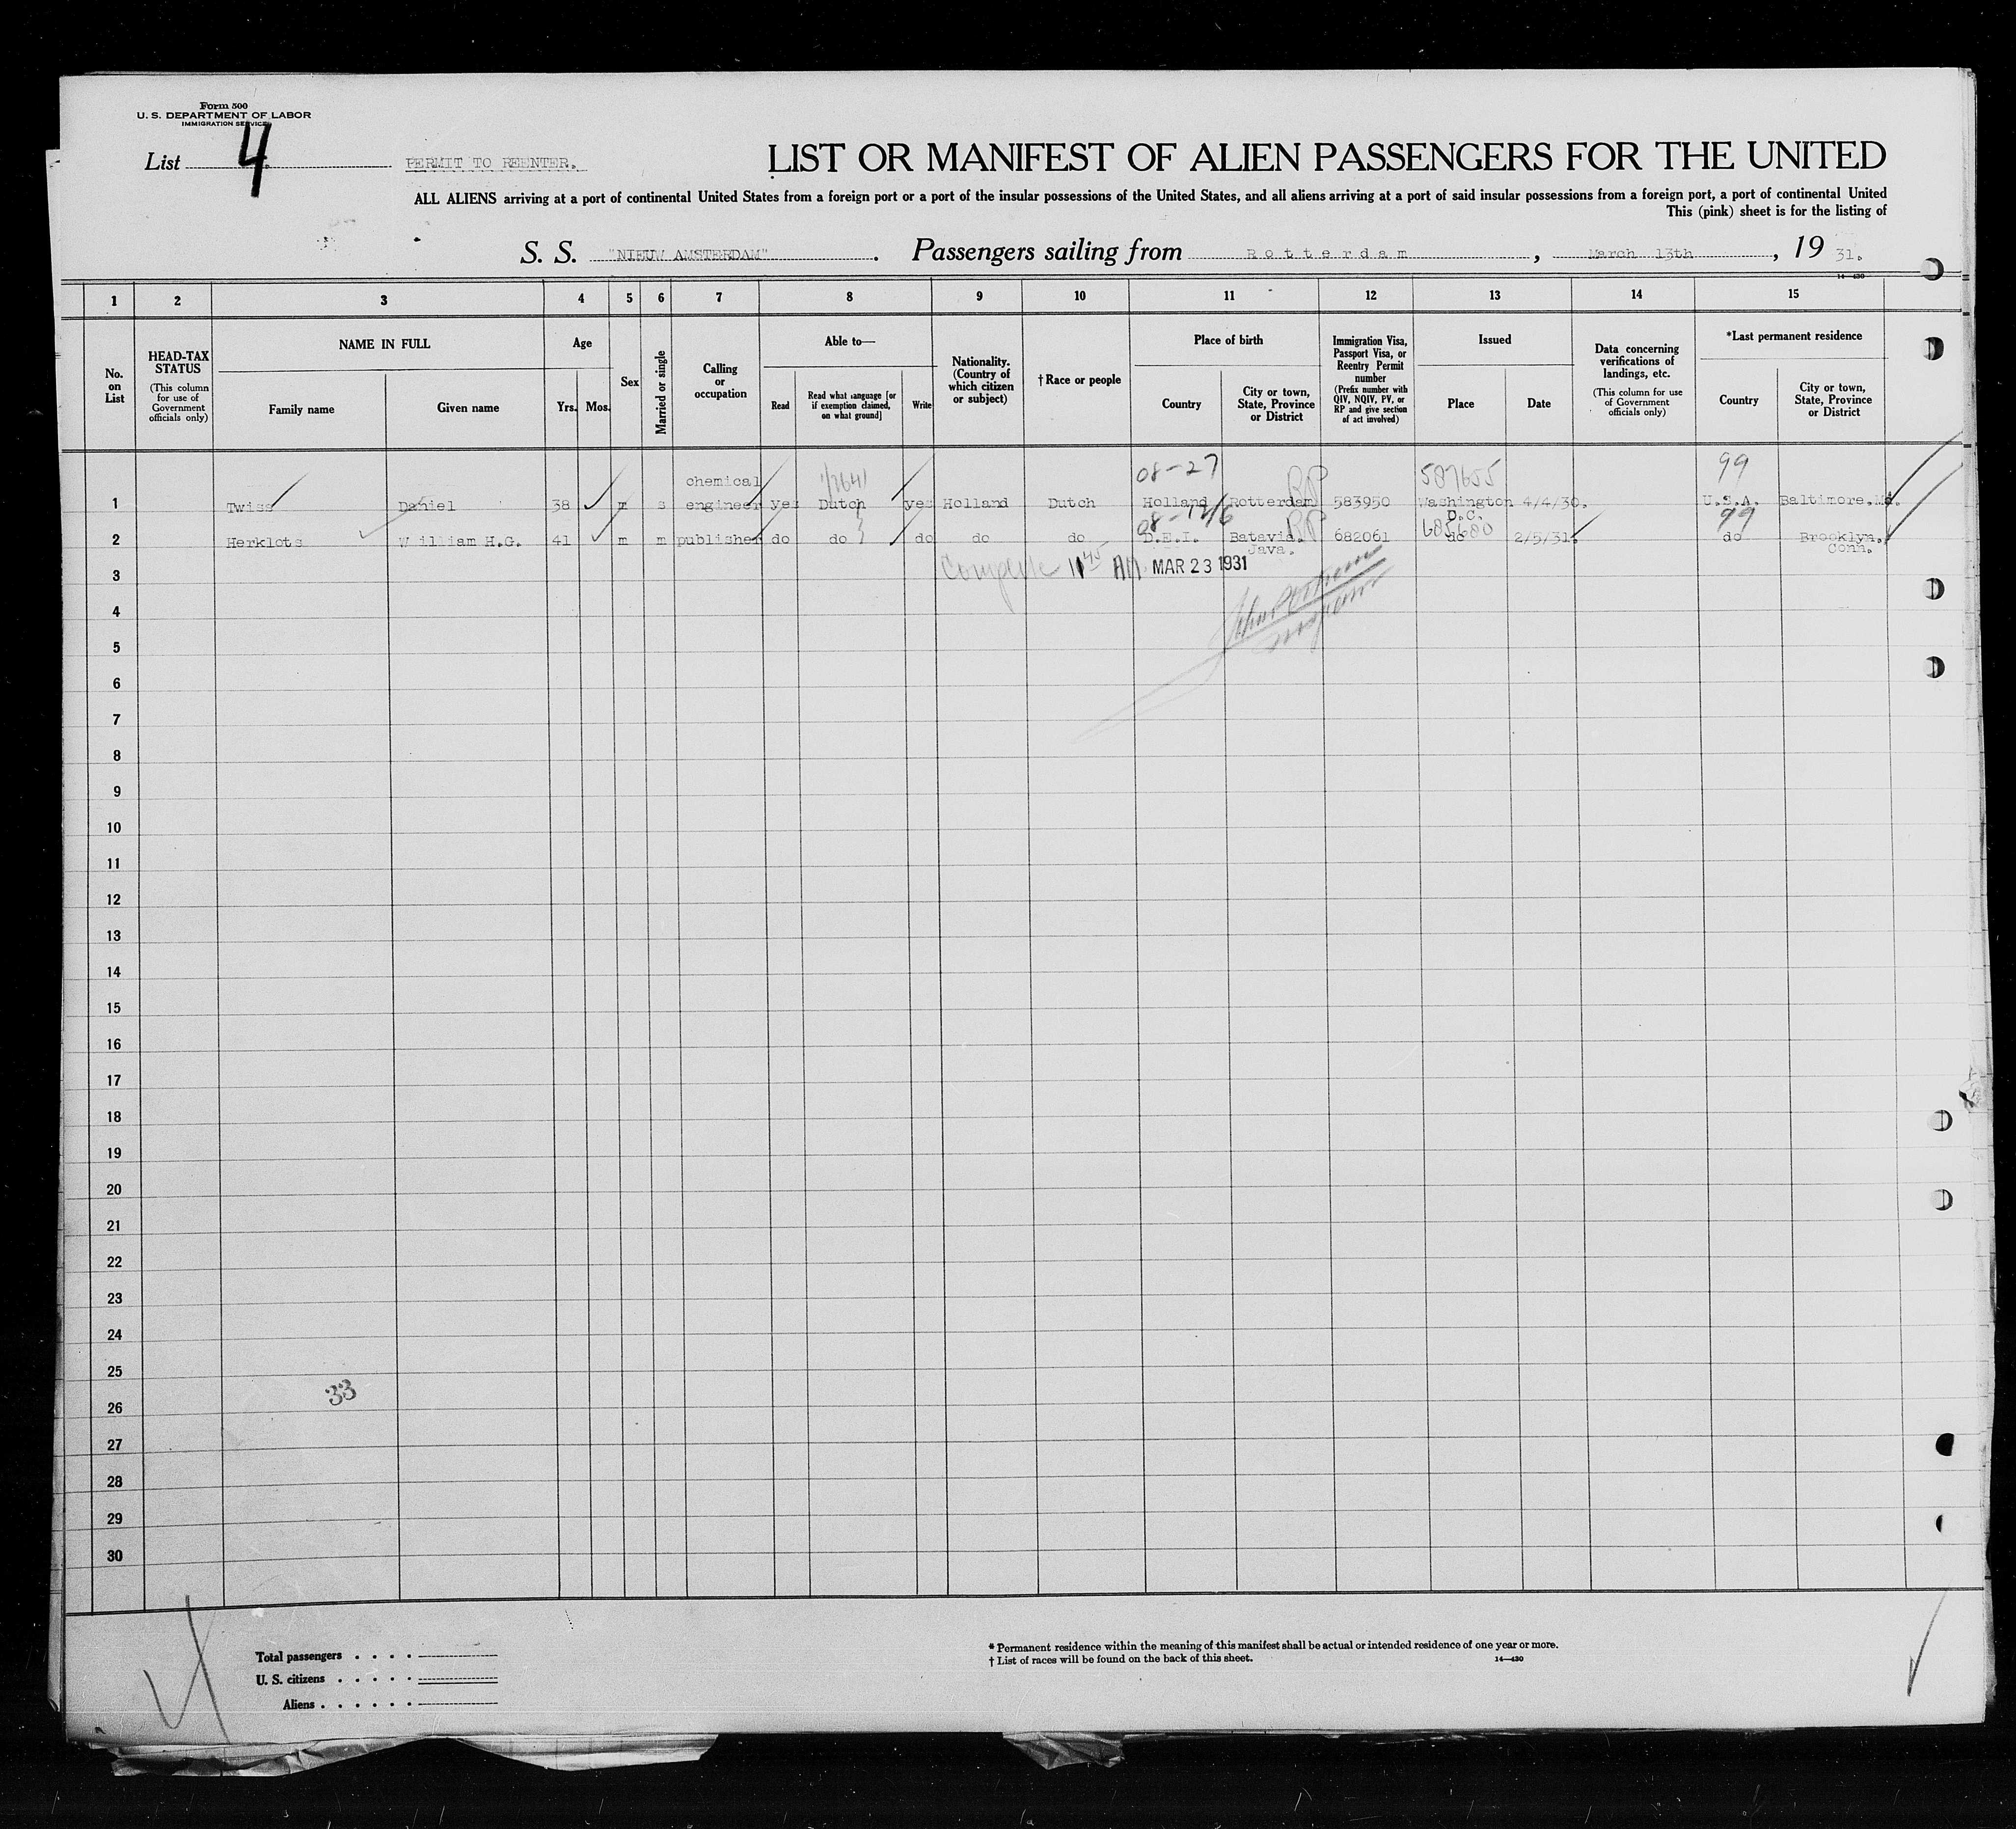 Form 500
U. S. DEPARTMENT OF LABOR
IMMIGRATION SERVICE
List 4
PERMIT TO REENTER.
LIST OR MANIFEST OF ALIEN PASSENGERS FOR THE UNITED
ALL ALIENS arriving at a port of continental United States from a foreign port or a port of the insular possessions of the United States, and all aliens arriving at a port of said insular possessions from a foreign port, a port of continental United
This (pink) sheet is for the listing of
S. S. "NIEUW AMSTERDAM" . Passengers sailing from Rotterdam , March 13th , 19 31.
14—430
1 2 3 4 5 6 7 8 9 10 11 12 13 14 15
No. on List
HEAD-TAX STATUS (This column for use of Government officials only)
NAME IN FULL
Family name
Given name
Age
Yrs. Mos.
Sex
Married or single
Calling or occupation
Able to—
Read
Read what language [or if exemption claimed, on what ground]
Write
Nationality. (Country of which citizen or subject)
† Race or people
Place of birth
Country
City or town, State, Province or District
Immigration Visa, Passport Visa, or Reentry Permit number (Prefix number with QIV, NQIV, PV, or RP and give section of act involved)
Issued
Place
Date
Data concerning verifications of landings, etc. (This column for use of Government officials only)
*Last permanent residence
Country
City or town, State, Province or District
08-27 RP 587655 99
1 Twiss Daniel 38 m s chemical engineer yes Dutch yes Holland Dutch Holland Rotterdam 583950 Washington D.C. 4/4/30. U.S.A. Baltimore.Md.
08- RP 99
2 Herklots William H.G. 41 m m publisher do do do do do D.E.I. Batavia. Java. 682061 do 2/5/31. do Brooklyn. Conn.
3 Complete 11 45 AM MAR 23 1931
4
5
6
7
8
9
10
11
12
13
14
15
16
17
18
19
20
21
22
23
24
25
33
26
27
28
29
30
Total passengers . . . .
U. S. citizens . . . . .
Aliens . . . . . .
* Permanent residence within the meaning of this manifest shall be actual or intended residence of one year or more.
† List of races will be found on the back of this sheet.
14—430